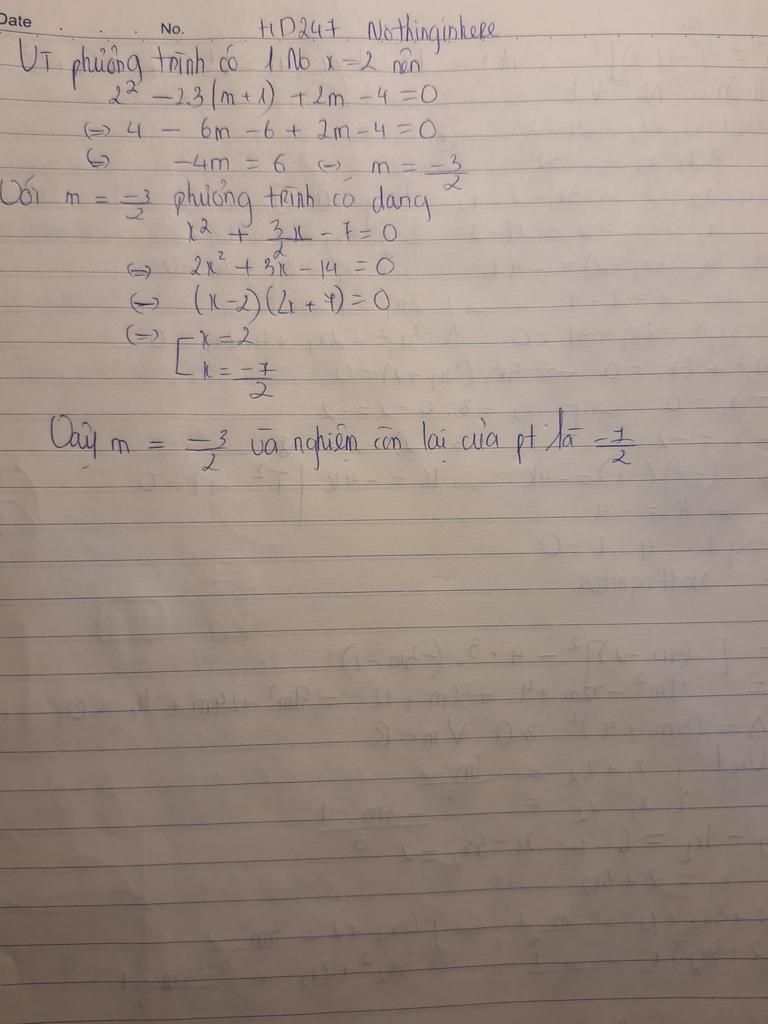 Date
No.
HD247 Nothinginhere
Vì phương trình có 1 No x = 2 nên
2² - 2.3(m+1) + 2m - 4 = 0
(=) 4 - 6m - 6 + 2m - 4 = 0
(=) -4m = 6 (=) m = -3/2
Với m = -3/2 phương trình có dạng
x² + 3x/2 - 7 = 0
(=) 2x² + 3x - 14 = 0
(=) (x-2)(2x+7) = 0
(=) [ x = 2
x = -7/2
Vậy m = -3/2 và nghiệm còn lại của pt là -7/2